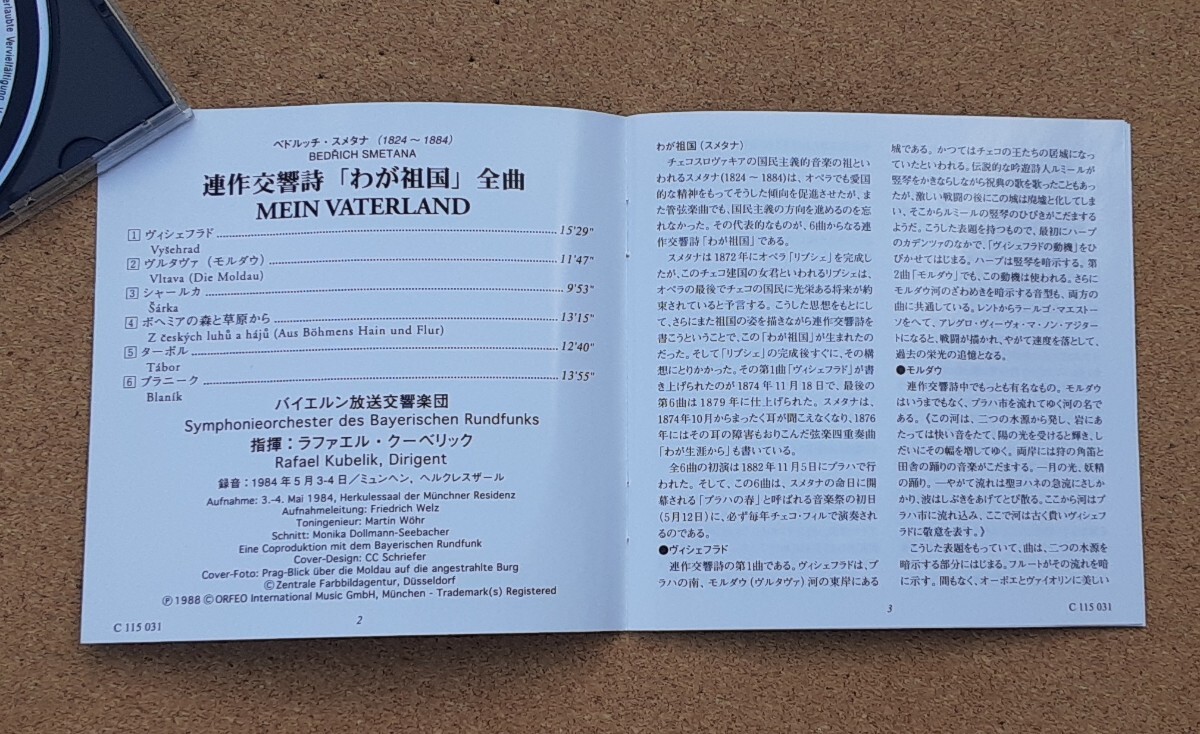 erlaubte Vervielfältigung
ベドルッチ・スメタナ (1824～1884)
BEDŘICH SMETANA
連作交響詩「わが祖国」全曲
MEIN VATERLAND
1 ヴィシェフラド 15'29"
Vyšehrad
2 ヴルタヴァ (モルダウ) 11'47"
Vltava (Die Moldau)
3 シャールカ 9'53"
Šárka
4 ボヘミアの森と草原から 13'15"
Z českých luhů a hájů (Aus Böhmens Hain und Flur)
5 ターボル 12'40"
Tábor
6 ブラニーク 13'55"
Blaník
バイエルン放送交響楽団
Symphonieorchester des Bayerischen Rundfunks
指揮：ラファエル・クーベリック
Rafael Kubelik, Dirigent
録音：1984年5月3-4日／ミュンヘン、ヘルクレスザール
Aufnahme: 3.-4. Mai 1984, Herkulessaal der Münchner Residenz
Aufnahmeleitung: Friedrich Welz
Toningenieur: Martin Wöhr
Schnitt: Monika Dollmann-Seebacher
Eine Coproduktion mit dem Bayerischen Rundfunk
Cover-Design: CC Schriefer
Cover-Foto: Prag-Blick über die Moldau auf die angestrahlte Burg
©Zentrale Farbbildagentur, Düsseldorf
℗1988 ©ORFEO International Music GmbH, München - Trademark(s) Registered
C 115 031
2
わが祖国（スメタナ）
チェコスロヴァキアの国民主義的音楽の祖とい
われるスメタナ(1824～1884)は、オペラでも愛国
的な精神をもってそうした傾向を促進させたが、ま
た管弦楽曲でも、国民主義の方向を進めるのを忘
れなかった。その代表的なものが、6曲からなる連
作交響詩「わが祖国」である。
スメタナは1872年にオペラ「リブシェ」を完成し
たが、このチェコ建国の女君といわれるリブシェは、
オペラの最後でチェコの国民に光栄ある将来が約
束されていると予言する。こうした思想をもとにし
て、さらにまた祖国の姿を描きながら連作交響詩を
書こうということで、この「わが祖国」が生まれたの
だった。そして「リブシェ」の完成後すぐに、その構
想にとりかかった。その第1曲「ヴィシェフラド」が書
き上げられたのが1874年11月18日で、最後の
第6曲は1879年に仕上げられた。スメタナは、
1874年10月からまったく耳が聞こえなくなり、1876
年にはその耳の障害もおりこんだ弦楽四重奏曲
「わが生涯から」も書いている。
全6曲の初演は1882年11月5日にプラハで行
われた。そして、この6曲は、スメタナの命日に開
幕される「プラハの春」と呼ばれる音楽祭の初日
(5月12日)に、必ず毎年チェコ・フィルで演奏され
るのである。
●ヴィシェフラド
連作交響詩の第1曲である。ヴィシェフラドは、プ
ラハの南、モルダウ(ヴルタヴァ)河の東岸にある
城である。かつてはチェコの王たちの居城になっ
ていたといわれる。伝説的な吟遊詩人ルミールが
竪琴をかきならしながら祝典の歌を歌ったこともあっ
たが、激しい戦闘の後にこの城は廃墟と化してしま
い、そこからルミールの竪琴のひびきがこだまする
ようだ。こうした表題を持つもので、最初にハープ
のカデンツァのなかで、「ヴィシェフラドの動機」をひ
びかせてはじまる。ハープは竪琴を暗示する。第
2曲「モルダウ」でも、この動機は使われる。さらに
モルダウ河のざわめきを暗示する音型も、両方の
曲に共通している。レントからラールゴ・マエストー
ソをへて、アレグロ・ヴィーヴォ・マ・ノン・アジター
トになると、戦闘が描かれ、やがて速度を落として、
過去の栄光の追憶となる。
●モルダウ
連作交響詩中でもっとも有名なもの。モルダウ
はいうまでもなく、プラハ市を流れてゆく河の名で
ある。《この河は、二つの水源から発し、岩にあ
たっては快い音をたて、陽の光を受けると輝き、し
だいにその幅を増してゆく。両岸には狩の角笛と
田舎の踊りの音楽がこだまする。—月の光、妖精
の踊り。—やがて流れは聖ヨハネの急流にさしか
かり、波はしぶきをあげてとび散る。ここから河はプ
ラハ市に流れ込み、ここで河は古く貴いヴィシェフ
ラドに敬意を表す。》
こうした表題をもっていて、曲は、二つの水源を
暗示する部分にはじまる。フルートがその流れを暗
に示す。間もなく、オーボエとヴァイオリンに美しい
3
C 115 031